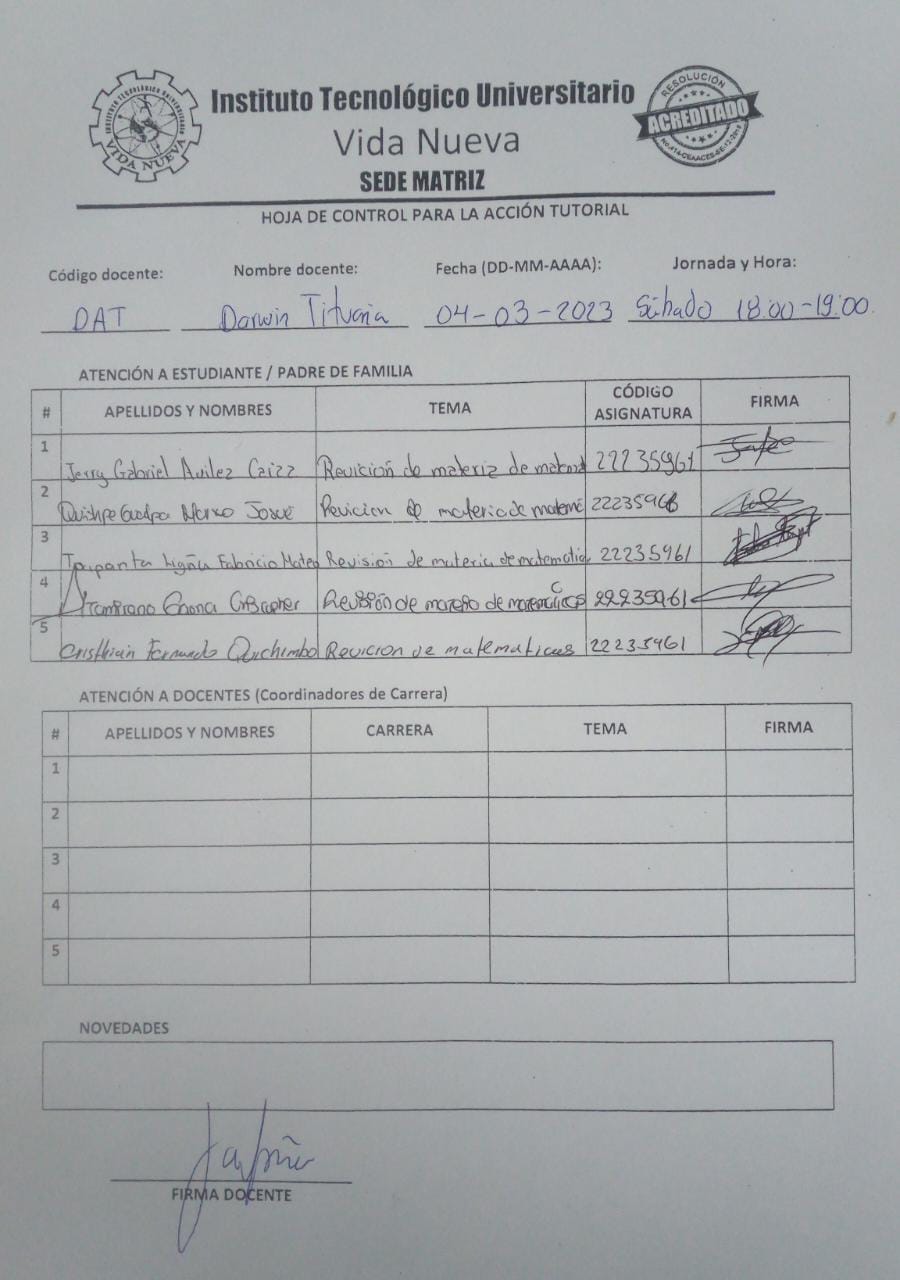 INSTITUTO TECNOLÓGICO UNIVERSITARIO
VIDA NUEVA
Instituto Tecnológico Universitario
Vida Nueva
SEDE MATRIZ
RESOLUCIÓN
ACREDITADO
HOJA DE CONTROL PARA LA ACCIÓN TUTORIAL
Código docente: Nombre docente: Fecha (DD-MM-AAAA): Jornada y Hora:
DAT Darwin Tituaña 04-03-2023 Sábado 18:00-19:00
ATENCIÓN A ESTUDIANTE / PADRE DE FAMILIA
# APELLIDOS Y NOMBRES TEMA CÓDIGO ASIGNATURA FIRMA
1 Jerry Gabriel Avilez Caiza Revición de materia de matema 22235961
2 Quishpe Marco Josue Revicion de materia de matema
3 Fabricio Mateo Revisión de materia de matematica 22235961
4 Revisión de materia de matemáticas 22235961
5 Cristhian Fernando Quichimbo Revicion de matematicas 22235961
ATENCIÓN A DOCENTES (Coordinadores de Carrera)
# APELLIDOS Y NOMBRES CARRERA TEMA FIRMA
1
2
3
4
5
NOVEDADES
FIRMA DOCENTE